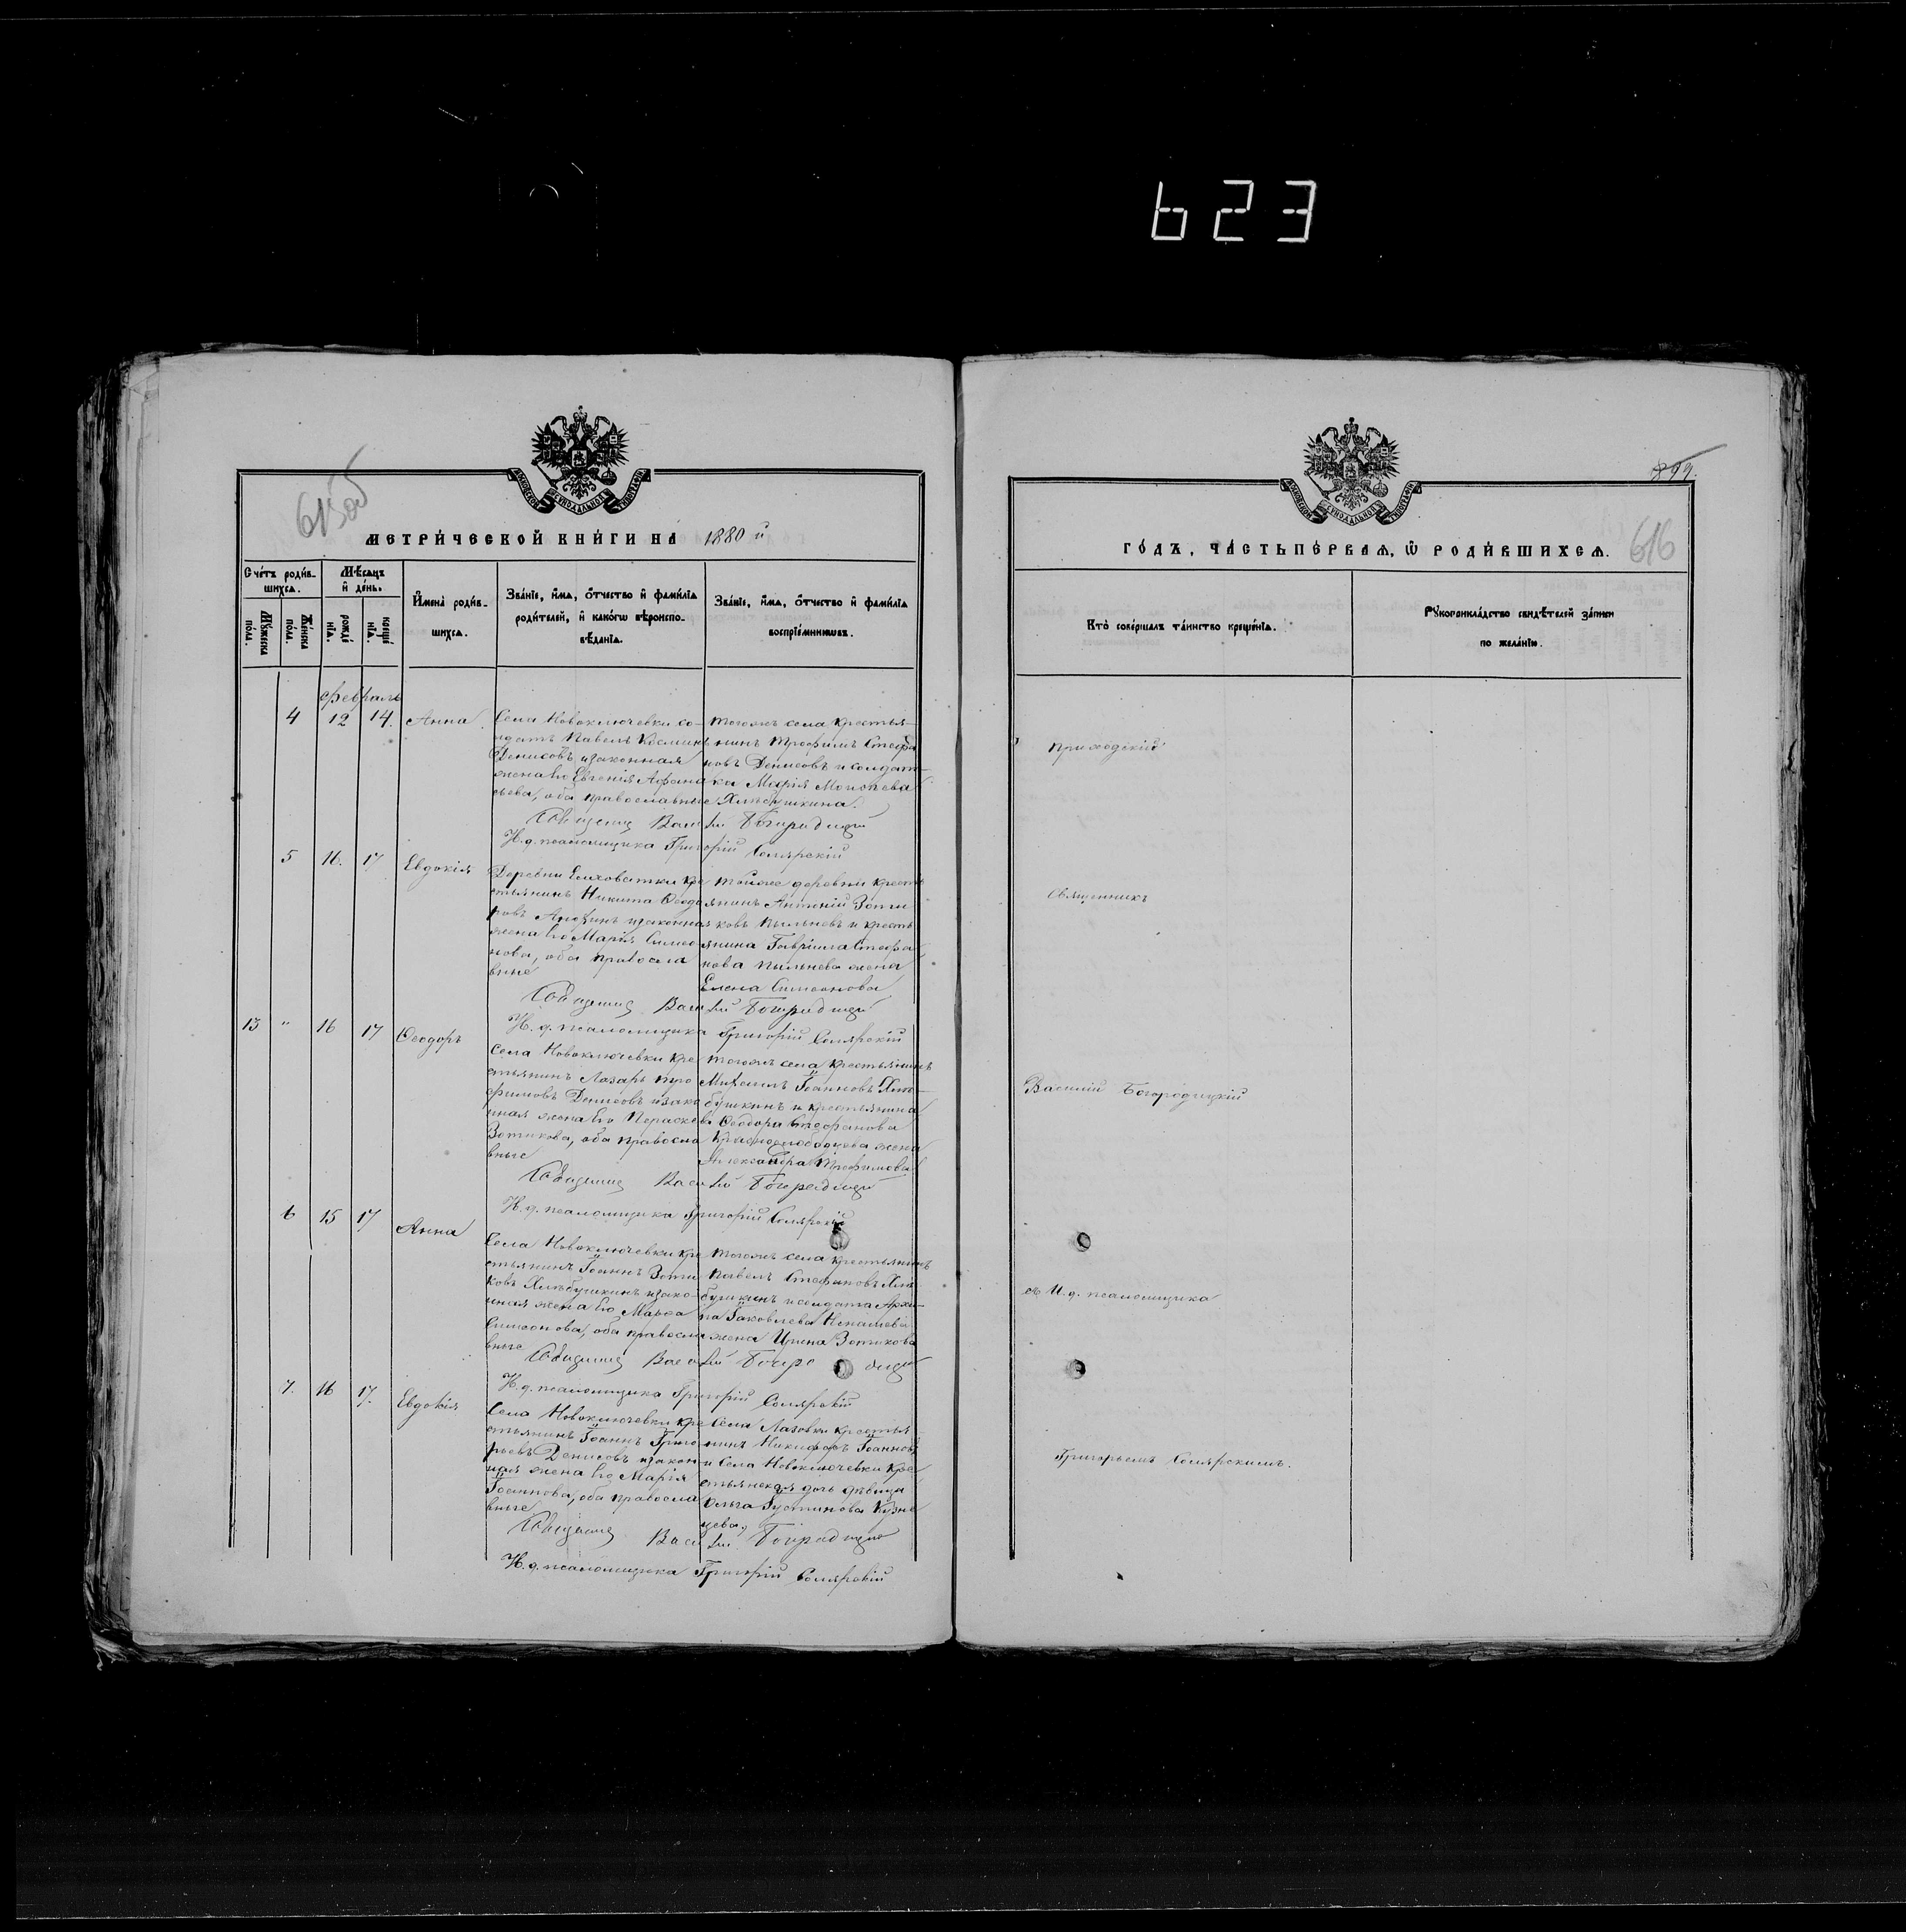 623
615об
МЕТРИ́ЧЕСКОЙ КНИ́ГИ НА 1880 й
Сче́тъ роди́в-
шихсѧ.
Мѣ́сѧцъ
и҆ де́нь.
Мꙋ́жеска
пола.
Же́нска
пола.
рожде́
нїѧ.
креще́
нїѧ.
И҆мена̀ роди́в-
шихсѧ.
Зва́нїе, и҆́мѧ, ѻ҆́тчество и҆ фамі́лїѧ
роди́телей, и҆ како́гѡ вѣроиспо-
вѣ́данїѧ.
Зва́нїе, и҆́мѧ, ѻ҆́тчество и҆ фамі́лїѧ
воспрїе́мникѡвъ.
февраль
4 12 14. Анна
Села Новоключевки со-
лдатъ Павелъ Косминъ
Денисовъ и законная
жена его Евгенія Афана
сьева, оба православные
тогожъ села крестья-
нинъ Трофимъ Стефа
новъ Денисовъ и солдат-
ка Марія Моисеева
Хлѣбушкина.
Священникъ Василій Богородицкій
И. д. псаломщика Григорій Солярскій
5 16. 17 Евдокія
Деревни Елховатки кре
стьянинъ Никита Ѳеодо
ровъ и законная
жена его Марія Симео
нова, оба правосла
вные
тойже деревни кресть
янинъ Антоній Зоти
ковъ Пыльневъ и кресть
янина Гавріила Стефа
нова Пыльнева жена
Елена Симеонова
Священникъ Василій Богородицкій
И. д. псаломщика Григорій Солярскій
13 " 16 17 Ѳеодоръ
Села Новоключевки кре
стьянинъ Лазарь Тро
фимовъ Денисовъ и зако
нная жена его Параскева
Зотикова, оба правосла
вные
тогожъ села крестьянинъ
Михаилъ Іоанновъ Хлѣ-
бушкинъ и крестьянина
Ѳеодора Стефанова
Краснослободцева жена
Александра Трофимова
Священникъ Василій Богородицкій
И. д. псаломщика Григорій Солярскій
6 15 17 Анна
Села Новоключевки кре
стьянинъ Іоаннъ Зоти
ковъ Хлѣбушкинъ и зако-
нная жена его Марѳа
Симеонова, оба правосла
вные
тогожъ села крестьянинъ
Павелъ Стефановъ Хлѣ
бушкинъ и солдата Архи-
па Іаковлева Ненашева
жена Ирина Зотикова
Священникъ Василій Богородицкій
И. д. псаломщика Григорій Солярскій
7. 16 17. Евдокія
Села Новоключевки кре
стьянинъ Іоаннъ Григо
рьевъ Денисовъ и закон-
ная жена его Марія
Іоаннова, оба правосла
вные
Села Лазовки крестья
нинъ Никифоръ Іоанновъ
и села Новоключевки кре
стьянская дочь дѣвица
Ольга Іустинова Кузне
цева,
Священникъ Василій Богородицкій
И. д. псаломщика Григорій Солярскій
899.
616
ГО́ДЪ, ЧА́СТЬ ПЕ́РВАѦ, Ѡ҆ РОДИ́ВШИХСѦ.
Кто̀ соверша́лъ та́инство креще́нїѧ.
Рꙋкоприкла́дство свидѣ́телей за́писи
по жела́нїю.
Приходскій
Священникъ
Василій Богородицкій
съ И. д. псаломщика
Григорьемъ Солярскимъ.